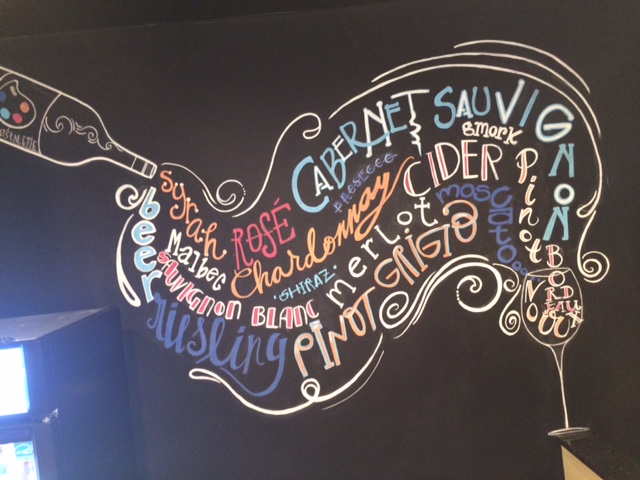 CABERNET SAUVIGNON
smork
PROSECCO
CIDER
syrah
ROSÉ
Chardonnay
moscato
pinot
NOIR
beer
Malbec
merlot
SAUVIGNON BLANC
"SHIRAZ"
PINOT GRIGIO
riesling
BORDEAUX